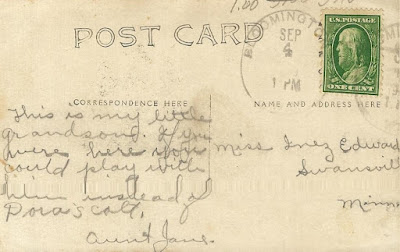 1.00
POST CARD
BLOOMINGTON
SEP
4
1 PM
U.S. POSTAGE
ONE CENT
CORRESPONDENCE HERE
NAME AND ADDRESS HERE
This is my little
grandson. If you
were here you
could play with
him instead of
Dora's cat.
Aunt Jane.
Miss Inez Edward
Swansvil
Minn